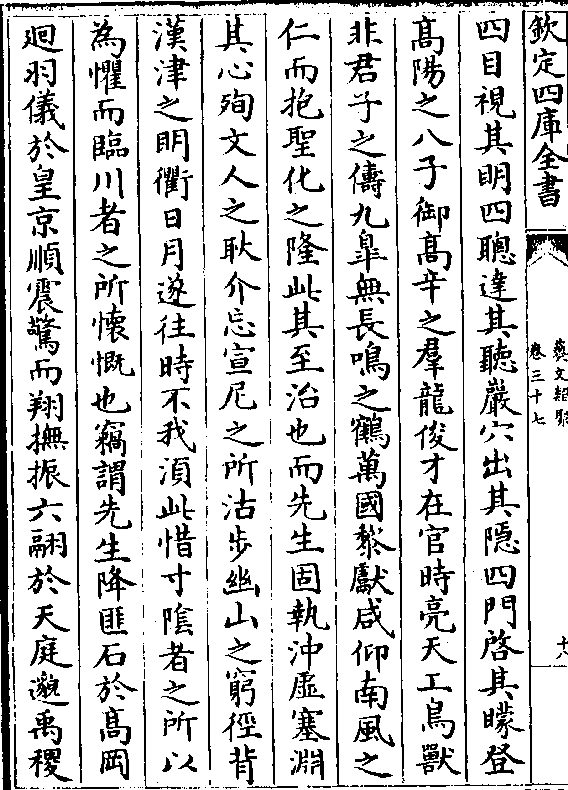 欽定四庫全書
藝文類聚
卷三十七
四目視其明四聰達其聽巖穴出其隱四門啓其矇登
髙陽之八子御髙辛之羣龍俊才在官時亮天工鳥獸
非君子之儔九臯無長鳴之鶴萬國黎獻咸仰南風之
仁而抱聖化之隆此其至治也而先生固執沖虛塞淵
其心殉文人之耿介忘宣尼之所沽步幽山之窮徑背
漢津之眀衢日月遂往時不我湏此惜寸隂者之所以
為懼而臨川者之所懷慨也竊謂先生降匪石於髙岡
廻羽儀於皇京順震驚而翔撫振六翮於天庭邈禹稷